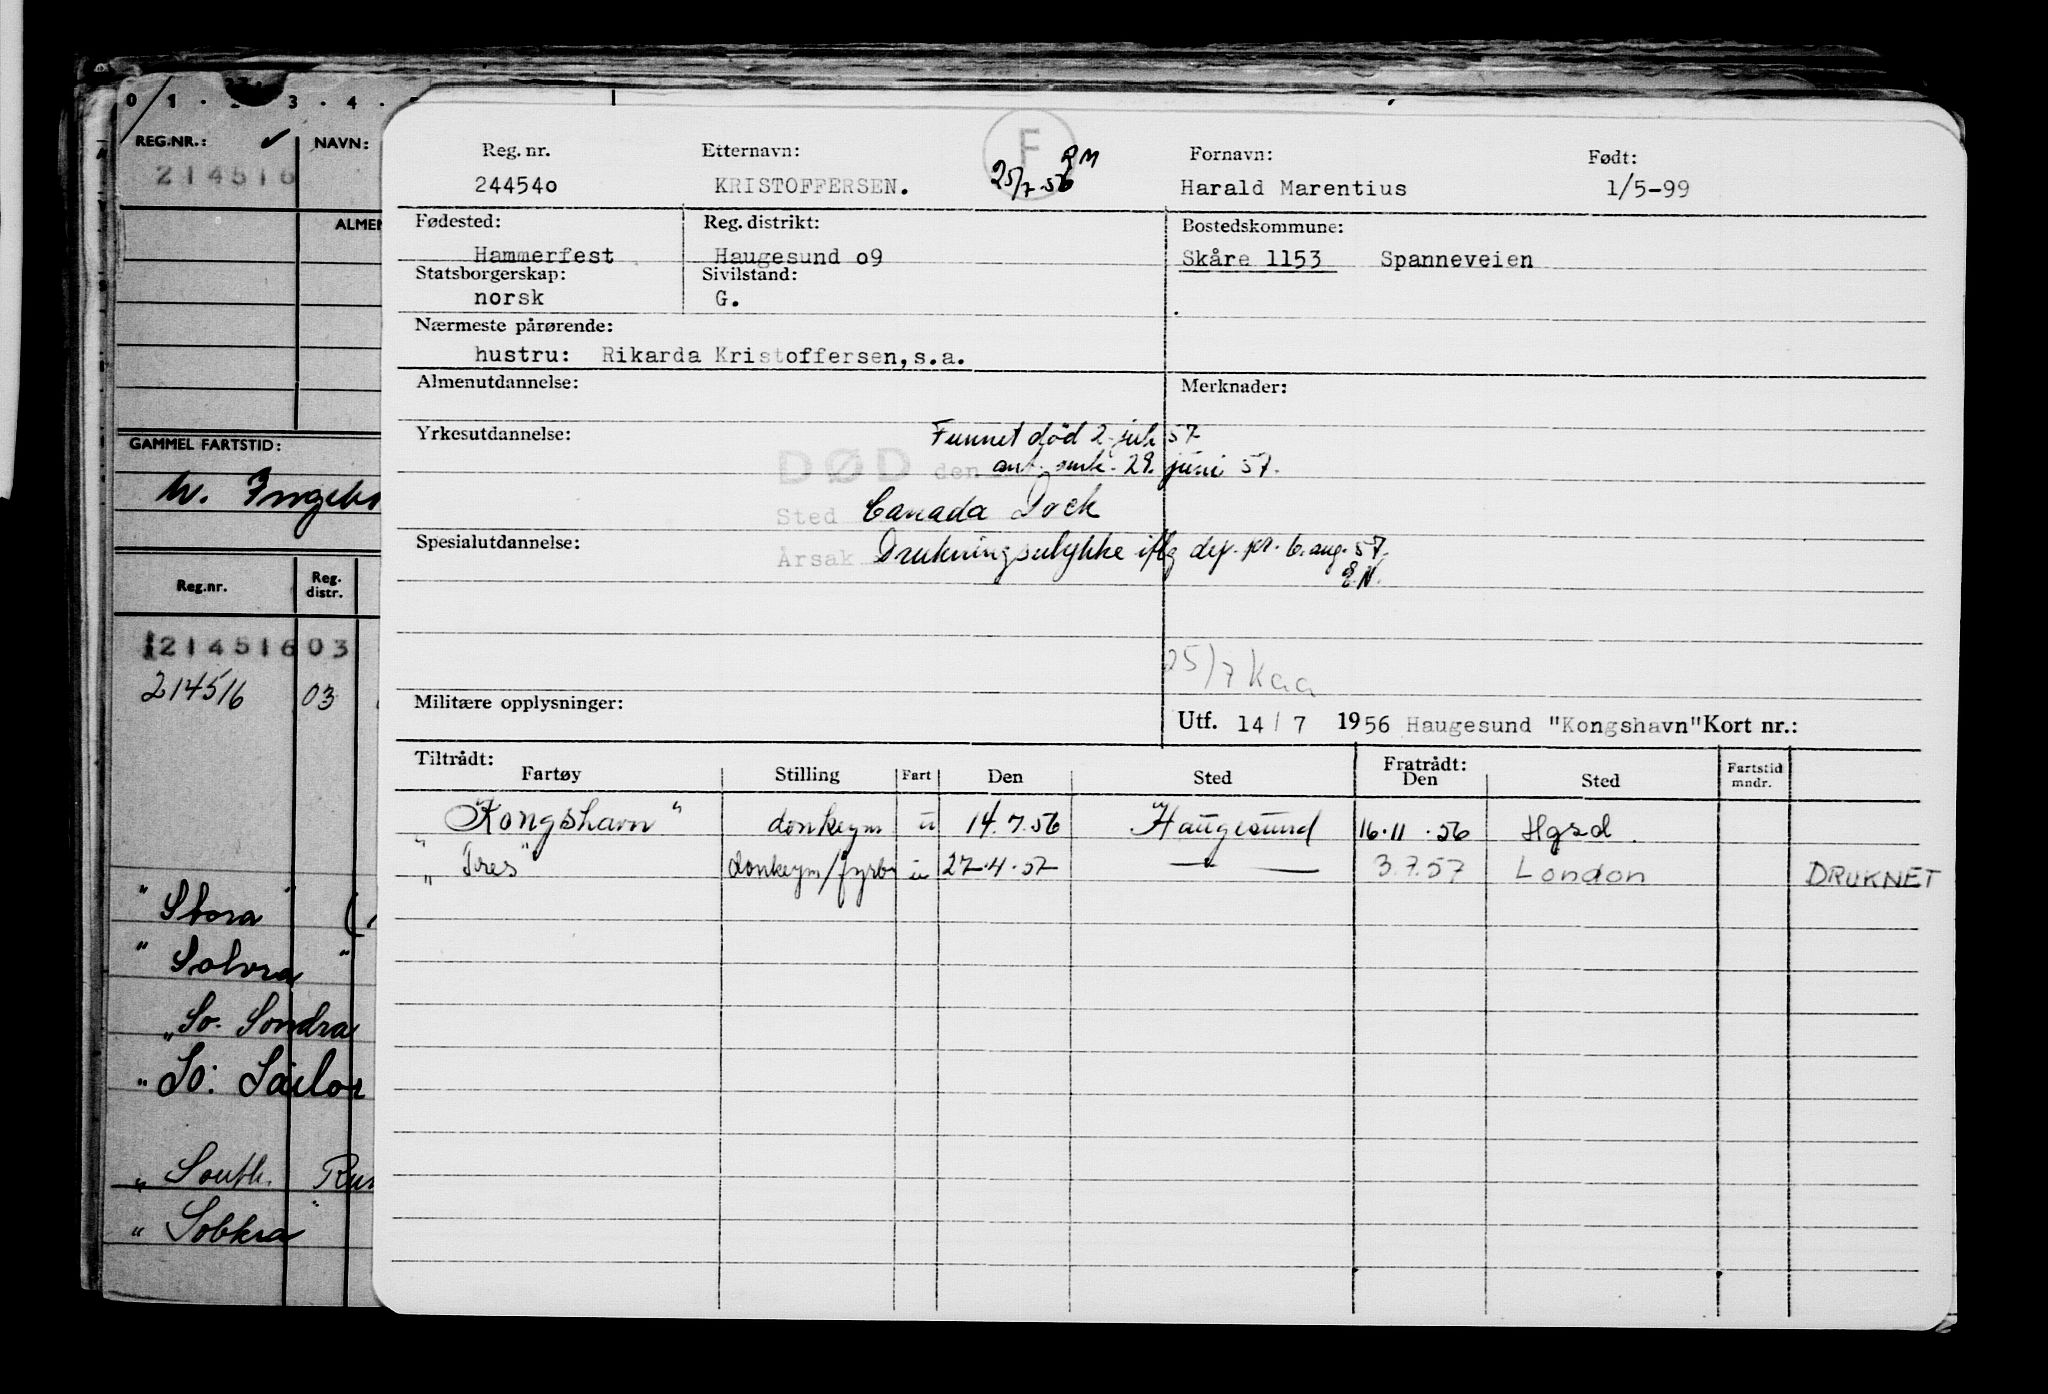 0 1 . 2 3 . 4 .
REG.NR.: ✓ NAVN:
214516
ALMEN
GAMMEL FARTSTID:
W. Ingebr
Reg.nr. Reg. distr.
21451603
214516 03
" Stora "
" Solvra "
" So. Sondra
" So: Sailor
" South. Run
" Sobkra "
F
Reg. nr. Etternavn: Fornavn: Født:
244540 KRISTOFFERSEN. 25/7-56 RM Harald Marentius 1/5-99
Fødested: Reg. distrikt: Bostedskommune:
Hammerfest Haugesund o9 Skåre 1153 Spanneveien
Statsborgerskap: Sivilstand:
norsk G.
Nærmeste pårørende:
hustru: Rikarda Kristoffersen, s.a.
Almenutdannelse: Merknader:
Yrkesutdannelse: Funnet død 2. juli 57
DØD den ant. omk. 29. juni 57.
Sted Canada Dock
Spesialutdannelse: Årsak Drukningsulykke iflg dep. pr. 6. aug. 57.
E.N.
25/7 Kaa
Militære opplysninger: Utf. 14/7 1956 Haugesund "Kongshavn" Kort nr.:
Tiltrådt: Fratrådt:
Fartøy Stilling Fart Den Sted Den Sted Fartstid mndr.
" Kongshavn " donkeym u 14.7.56 Haugesund 16.11.56 Hgsd.
" Tres " donkeym/fyrb u 27.4.57 — — 3.7.57 London DRUKNET